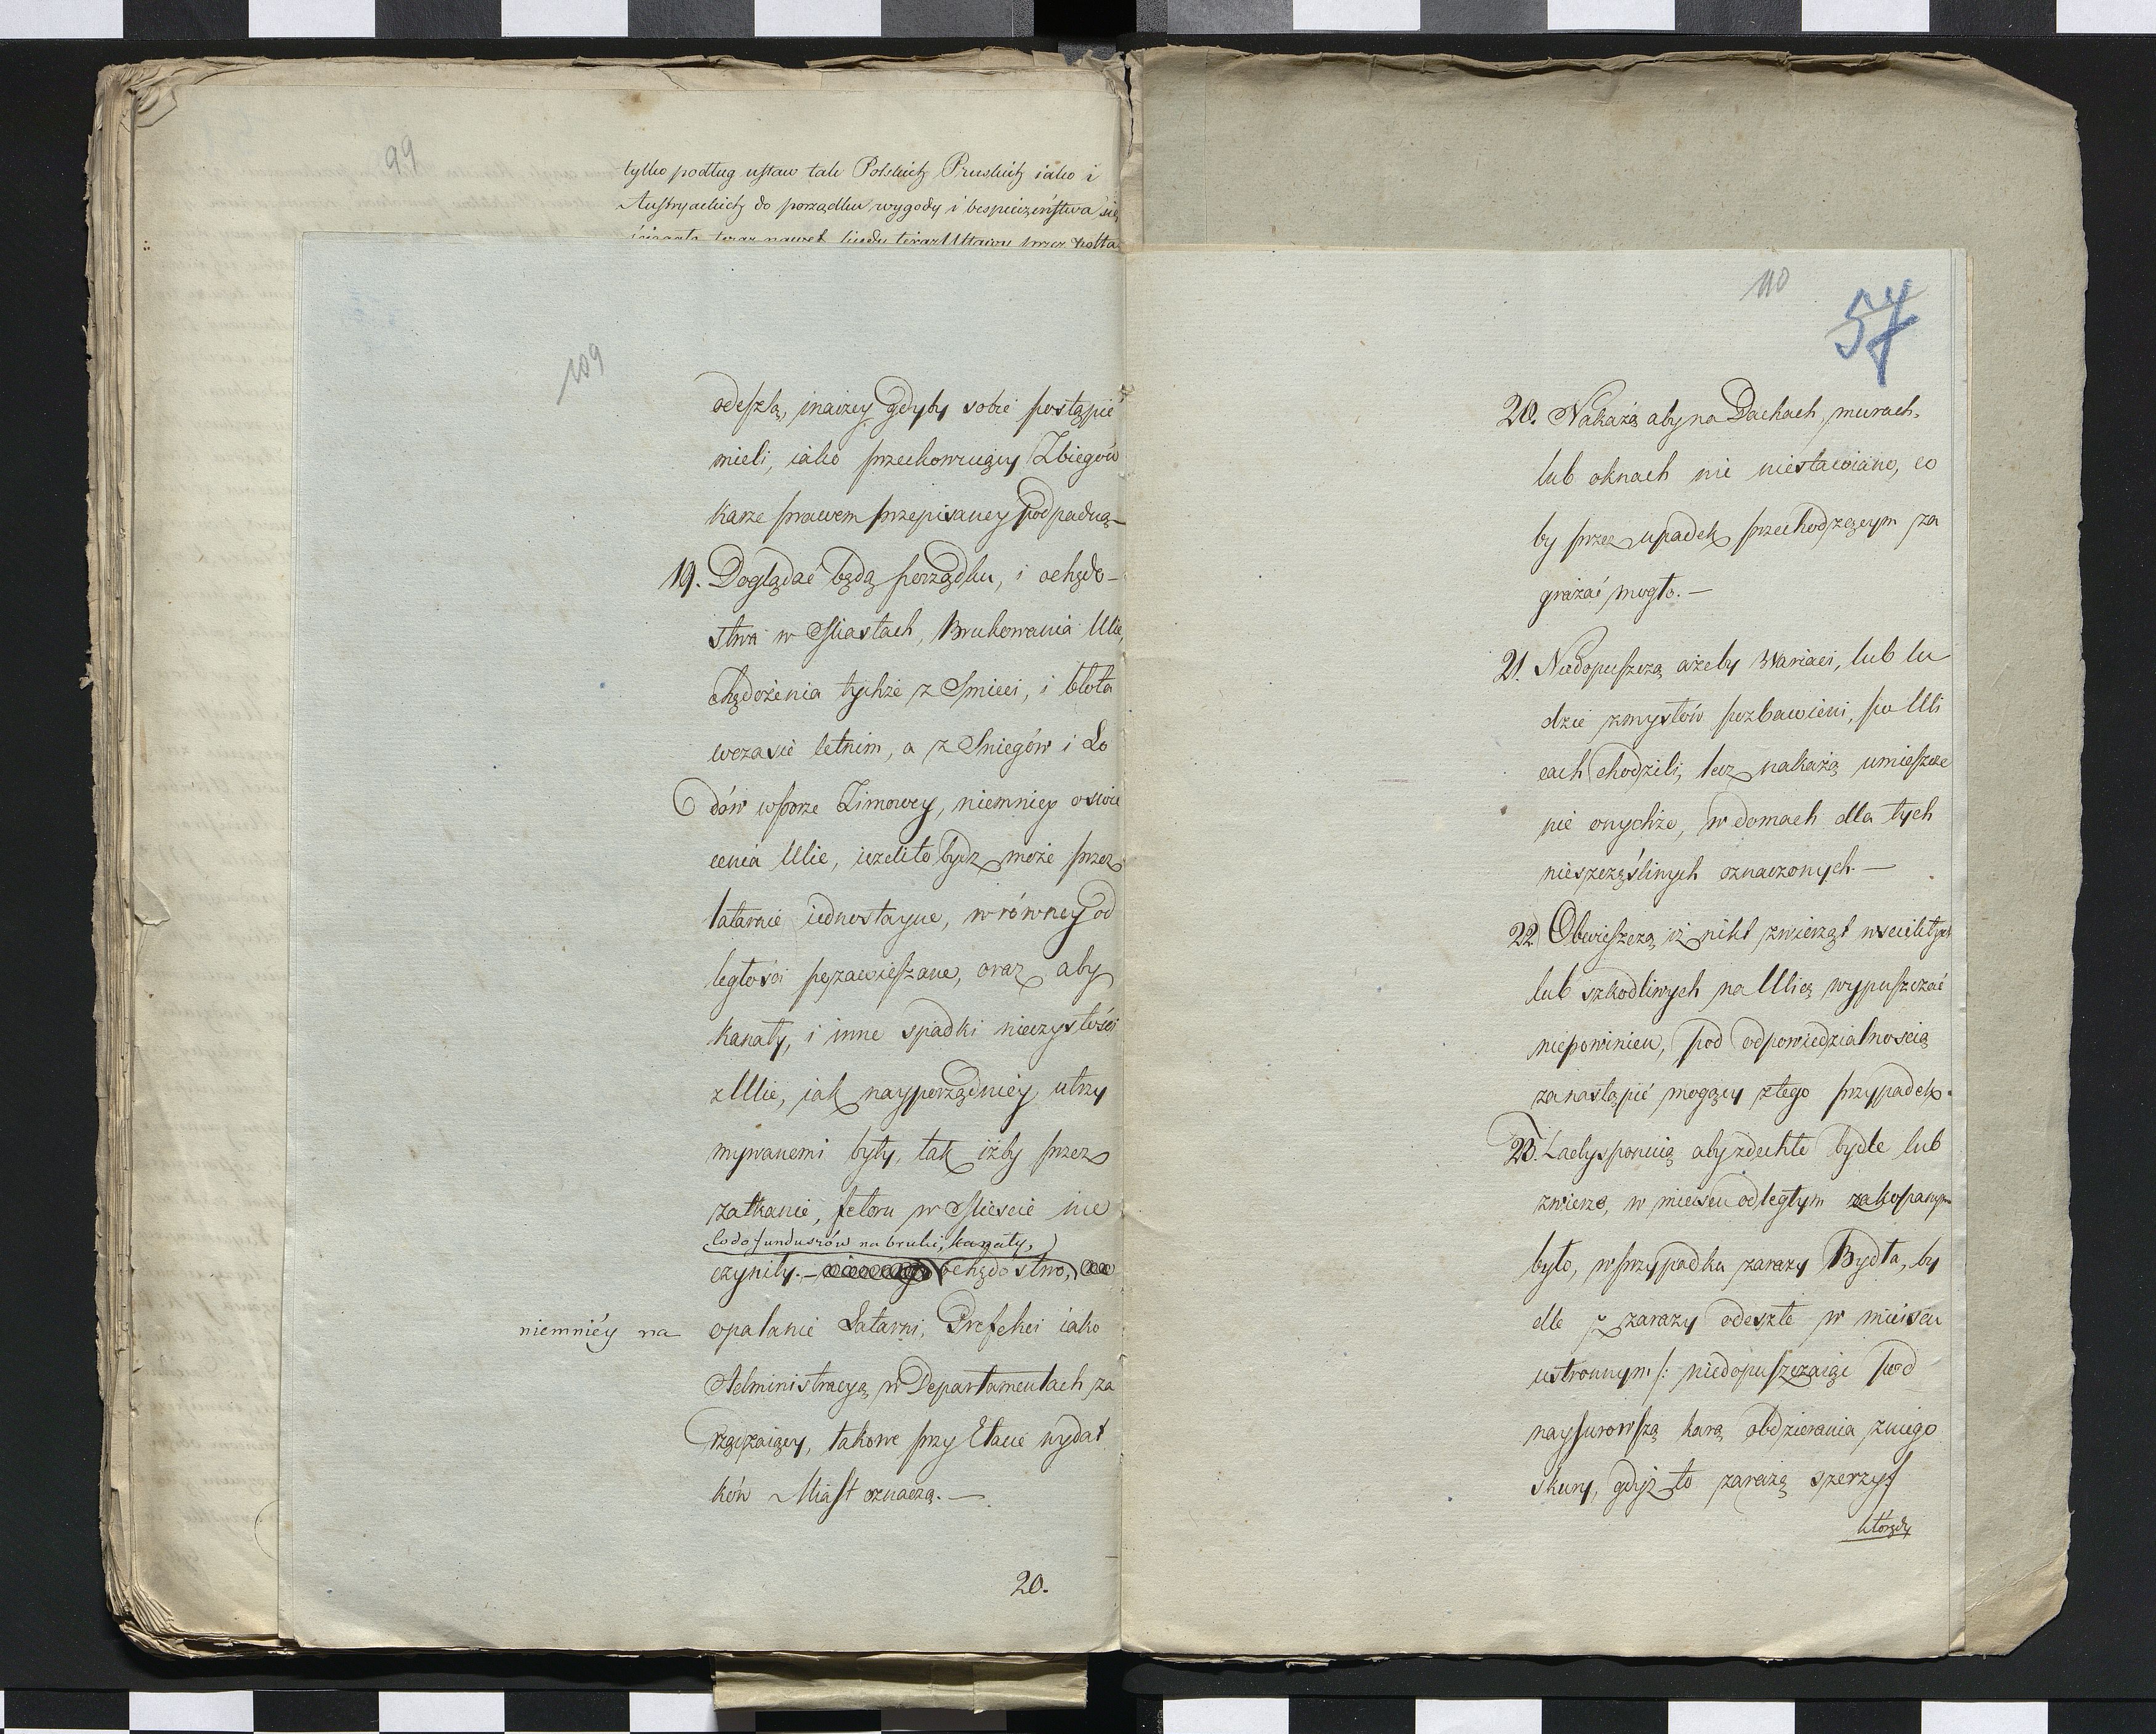 99
tylko podług ustaw tak Polskich Pruskich iako i
Austryackich do porządku wygody i bespieczeństwa się
109
odeszlą, inaczey gdyby sobie postąpić
mieli, iako przechowuiący Zbiegów
karze prawem przepisaney podpadną –
19. Doglądać będą porządku, i ochędo-
stwa w Miastach, Brukowania Ulic,
chędożenia tychże z Smieci, i błota
wczasie letnim, a z Sniegów i Lo
dów wporze Zimowey, niemniey oswie
cenia Ulic, ieżelito bydz może przez
latarnie iednostayne, w równey od
ległosci pozawieszane, oraz aby
kanały, i inne spadki nieczystości
z Ulic, iak nayporządniey utrzy
mywanemi były, tak iżby przez
zatkanie, fetoru w Miescie nie
Co do funduszów na bruki, kanały,
czyniły. – ochędostwo,
niemniéy na opalanie Latarni, Prefekci iako
Administracyą w Departamentach za
rządzaiący, takowe przy Etacie wydat
ków Miast oznaczą. –
20.
110
57
20. Nakażą aby na Dachach, murach,
lub oknach nic niestawiano, co
by przez upadek przechodzącym za
grażać mogło. –
21. Niedopuszczą ażeby Wariaci, lub lu
dzie zmysłów pozbawieni, po Uli
cach chodzili, lecz nakażą umieszcze
nie onychże, w domach dla tych
nieszczęśliwych oznaczonych. –
22. Obwieszczą iż nikt zwierząt wscieklych
lub szkodliwych na Ulicę wypuszczać
niepowinien, pod odpowiedzialnoscią
zanastąpić mogący złego przypadek.
23. Zadysponuią aby zdechłe bydle lub
zwierze, w mieyscu odległym zakopanym
było, w przypadku zarazy Bydła, by
dle z zarazy odeszłe w mieiscu
ustronnym /: niedopuszczaiąc pod
naysurowszą karą obdzierania z niego
skury, gdyż to zarazę szerzy :/
którędy